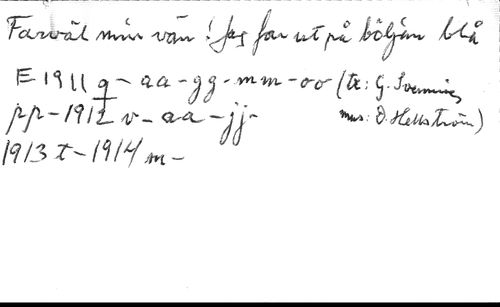 Farväl min vän! Jag far ut på böljan blå
E 1911 q - aa - gg - mm - oo (tx: G. Svenning,
pp - 1912 v - aa - jj - mus: O. Hellström)
1913 t - 1914 m -